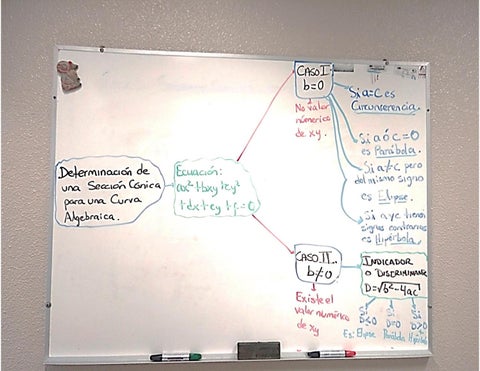 Determinación de
una Sección Cónica
para una Curva
Algebraica.
Ecuación:
ax²+bxy+cy²
+dx+ey+f=0
CASO I
b=0
No valor
númerico
de xy.
Si a=c es
Circunferencia.
Si a ó c=0
es Parábola.
Si a≠c pero
del mismo signo
es Elipse.
Si a y c tienen
signos contrarios
es Hipérbola.
CASO II..
b≠0
Existe el
valor numérico
de xy
INDICADOR
O DISCRIMINANTE
D=√b²-4ac
Si Si Si
D<0 D=0 D>0
Es: Elipse Parábola Hipérbola